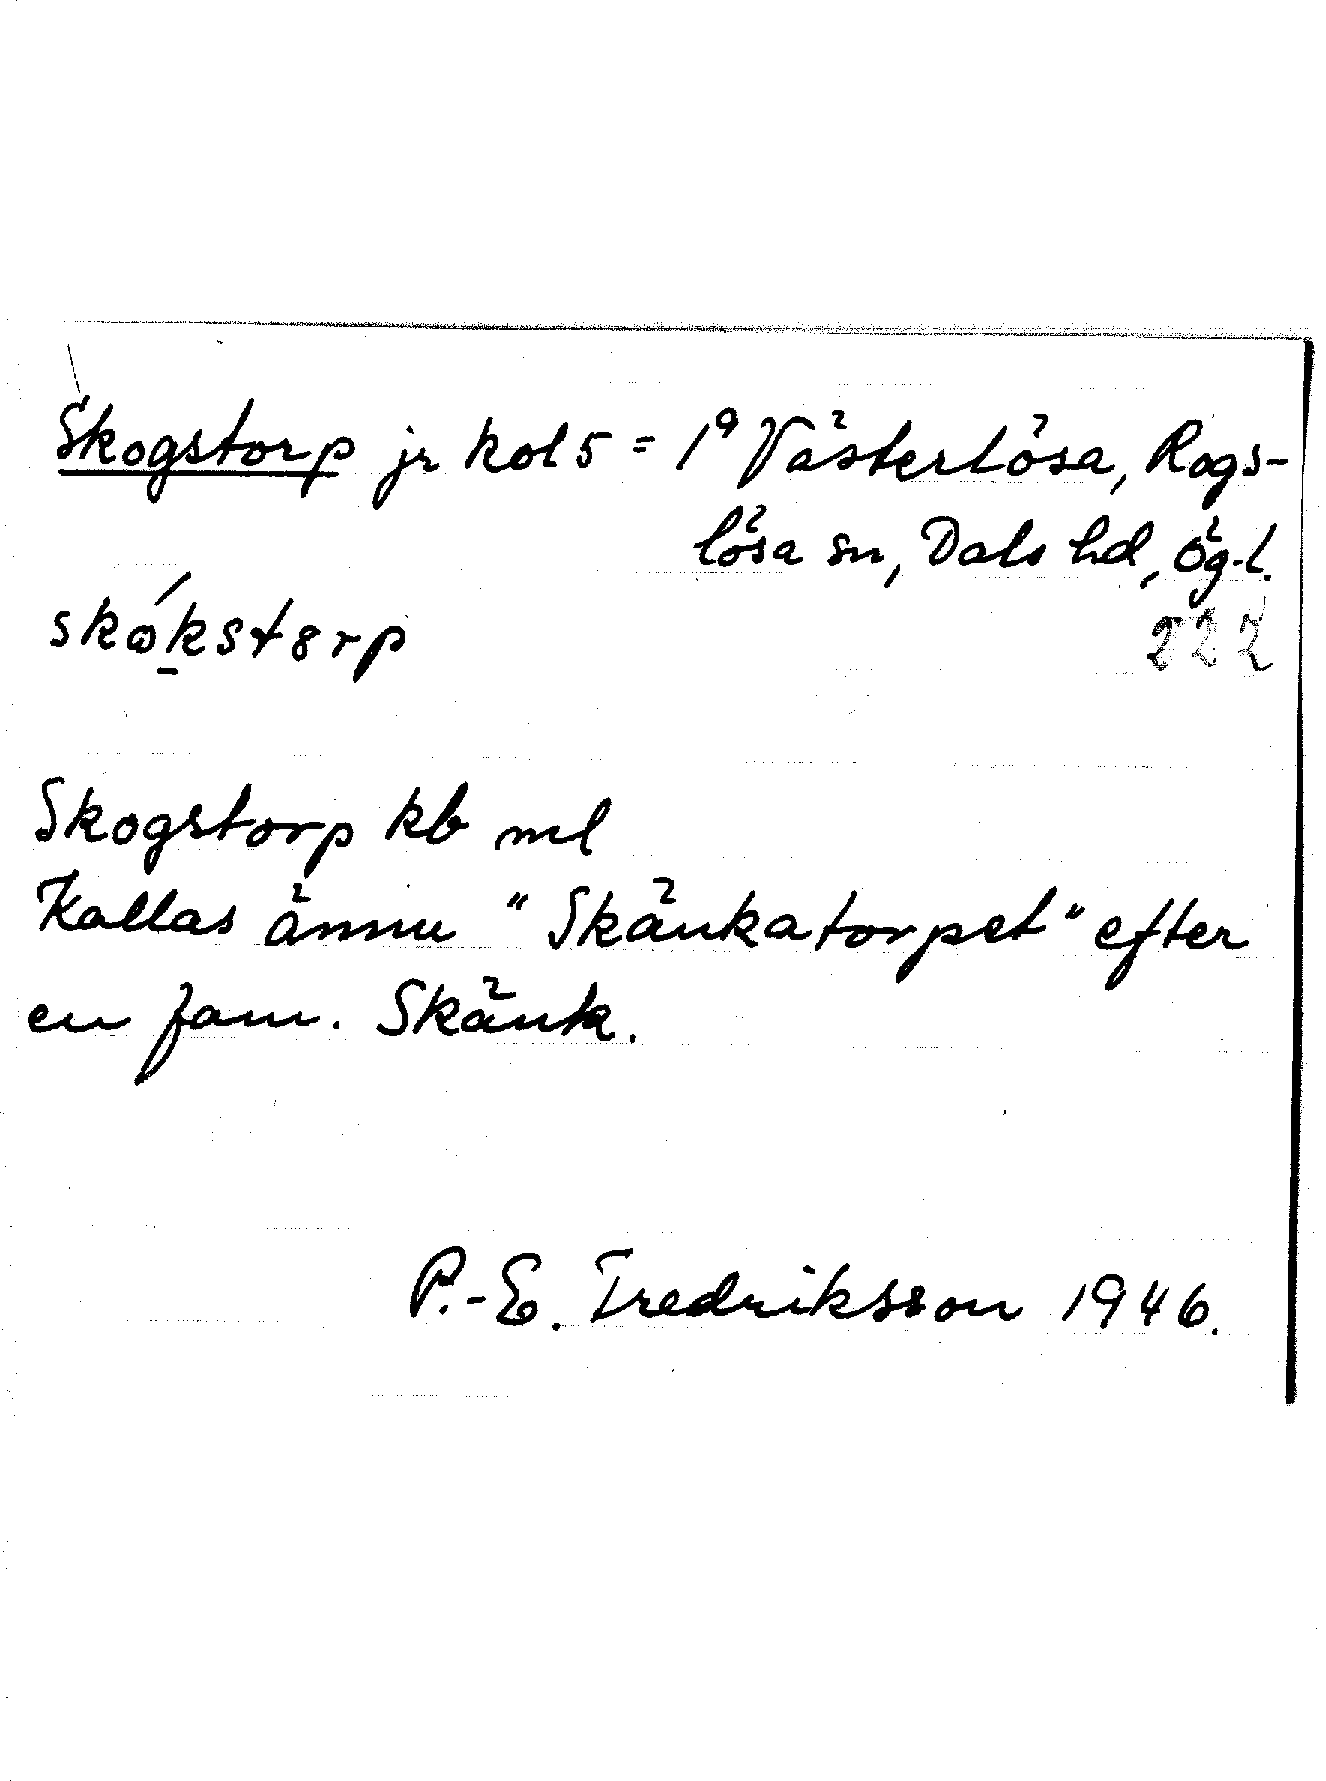 Skogstorp jr kol 5 = 1⁹ Västerlösa, Rogs-
lösa sn, Dals hd, Ög.l.
skɷ́k̠stɜrp
222
Skogstorp kb ml
Kallas ännu "Skänkatorpet" efter
en fam. Skänk.
P.-E. Fredriksson 1946.